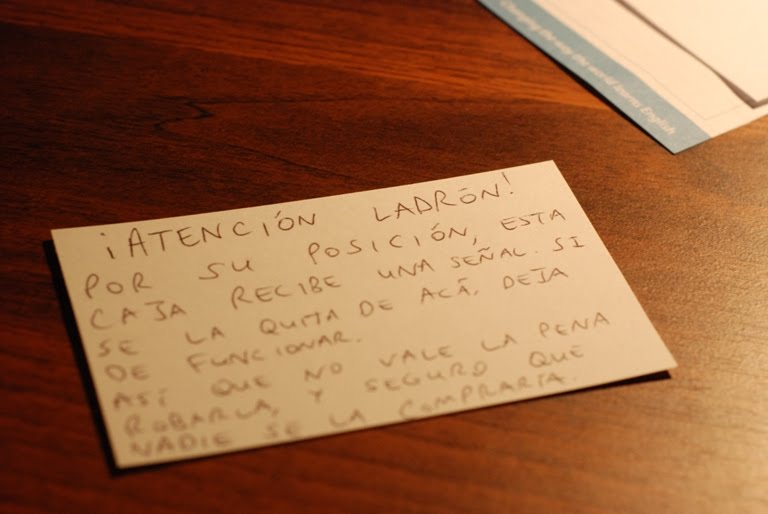 Changing the way the world learns English
¡ATENCIÓN LADRÓN!
POR SU POSICIÓN, ESTA
CAJA RECIBE UNA SEÑAL. SI
SE LA QUITA DE ACÁ, DEJA
DE FUNCIONAR.
ASÍ QUE NO VALE LA PENA
ROBARLA, Y SEGURO QUE
NADIE SE LA COMPRARÍA.